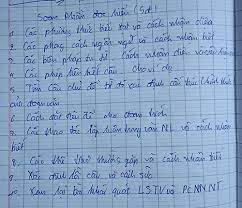 Soạn Phần đọc hiểu (5đ)
1. Các phương thức biểu đạt và cách nhận diện
2. Các phong cách ngôn ngữ và cách nhận biết
3. Các biện pháp tu từ cách nhận diện và
4. Các phép liên kết câu cho ví dụ
5. Tìm câu chủ đề từ đó xác định cấu trúc (hình thức)
của đoạn văn
6. Cách đặt tiêu đề cho đoạn trích
7. Các thao tác lập luận trong văn NL và cách nhận
biết
8. Các thể thơ thường gặp và cách nhận biết
9. Xác định và cách
10. Xem lại bài khái quát LSTV và PCNNNT